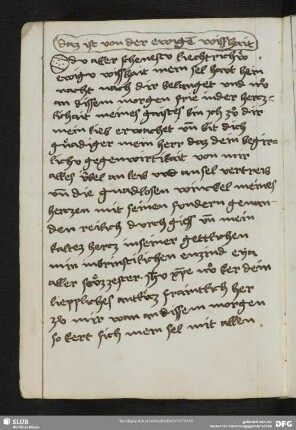 daz ist von der ewigē wisshait
du aller schenestv liechtrichv̊
ewigv wisshait mein sel hat hein
nacht nach dir belanget vnd nv̊
an dissem morgen frie inder hercz
lichait meines gaistes bin ich zv̊ dir
mein lieb erwachet vn̄ bit dich
gnadiger mein herr daz dein begir
lichv gegenwirtikait von mir
alles v̈bel an leib vnd an sel vertreib
vn̄ die gnadlosen winckel meines
herczen mit seinen sondern gnan
den reilich durch giess vn̄ mein
kaltez hercz in seiner gettlichen
min inbrinstilichen enzind eya
aller sözzester nv̊ ker dein
liepliches antlücz fraintlich her
zv̊ mir wan an dissem morgen
so kert sich mein sel mit allen
SLUB
DFG